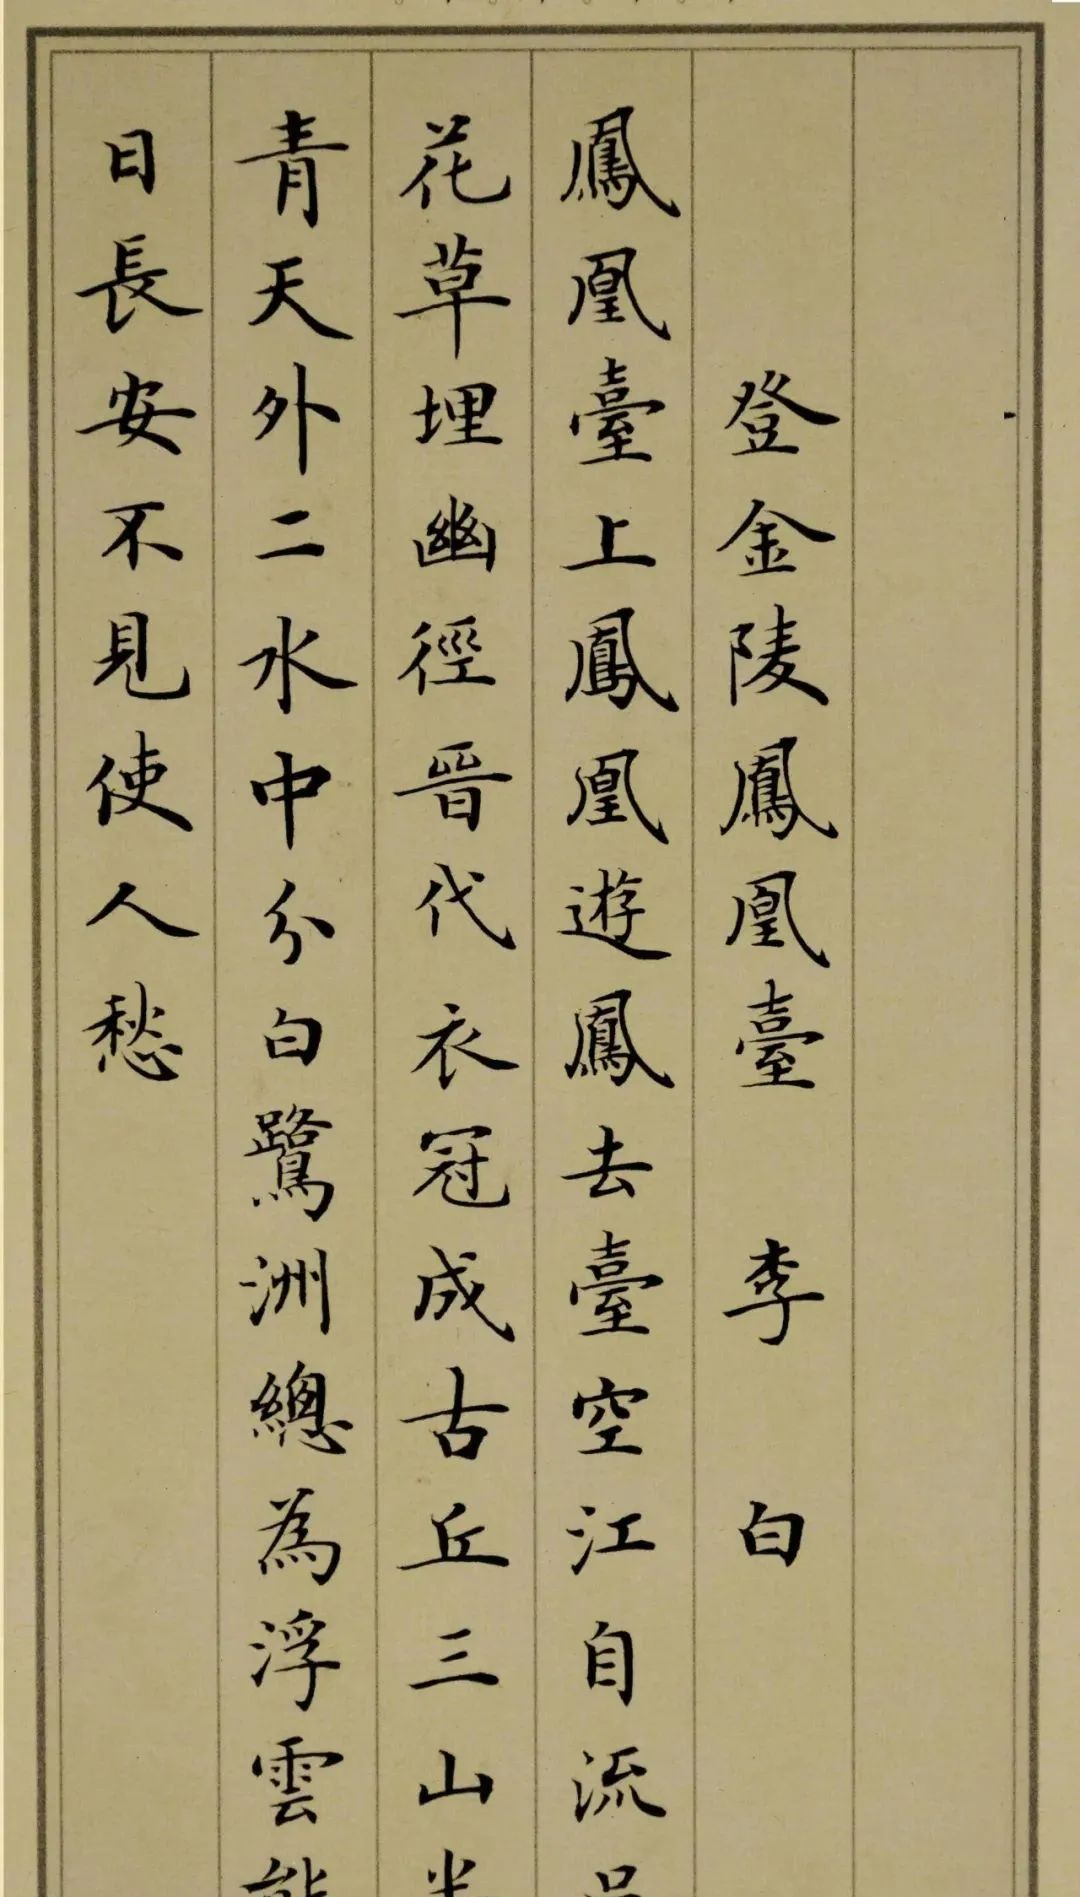 登金陵鳳凰臺 李白
鳳凰臺上鳳凰遊鳳去臺空江自流
花草埋幽徑晉代衣冠成古丘三山
青天外二水中分白鷺洲總為浮雲
日長安不見使人愁